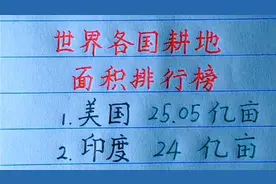 世界各国耕地
面积排行榜
1.美国 25.05亿亩
2.印度 24亿亩